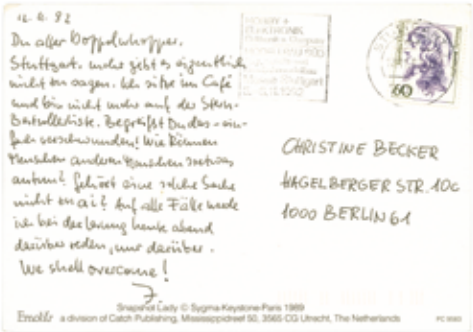 12.11.92
Du alter Doppelwhopper.
Stuttgart. mehr gibt es eigentlich
nicht zu sagen. Ich sitze im Café
und bin nicht mehr auf der Stern-
Bestsellerliste. Begreifst Du das - ein-
fach verschwunden! Wie können
Menschen anderen Menschen sowas
antun? Gehört eine solche Sache
nicht zu ai? Auf alle Fälle werde
ich bei der Lesung heute abend
darüber reden, nur darüber.
We shall overcome!
J.
ELEKTRONIK
Stuttgart
60
CHRISTINE BECKER
HAGELBERGER STR. 10c
1000 BERLIN 61
Snapshot Lady © Sygma-Keystone-Paris 1989
a division of Catch Publishing, Mississippidreef 50, 3565 CG Utrecht, The Netherlands